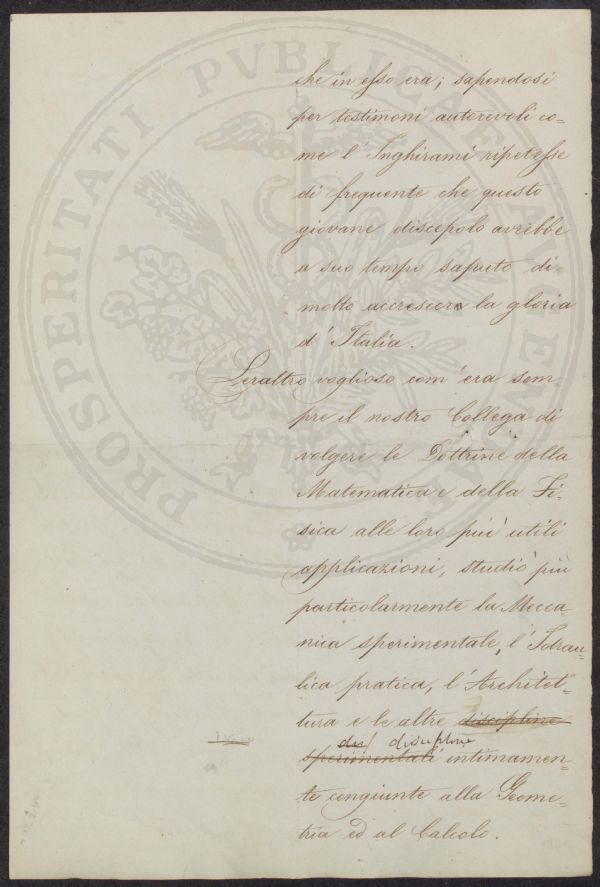 che in esso era; sapendosi
per testimoni autorevoli co=
me l'Inghirami ripetesse
di frequente che questo
giovane discepolo avrebbe
a suo tempo saputo di
molto accrescere la gloria
d'Italia.
Peraltro voglioso com'era sem
pre il nostro Collega di
volgere le Dottrine della
Matematica e della Fi-
sica alle loro più utili
applicazioni, studiò più
particolarmente la Mecca
nica sperimentale, l'Idrau-
lica pratica, l'Architet-
tura e le altre discipline
discipline
sperimentali intimamen-
te congiunte alla Geome-
tria ed al Calcolo.
PROSPERITATI PVBLICAE